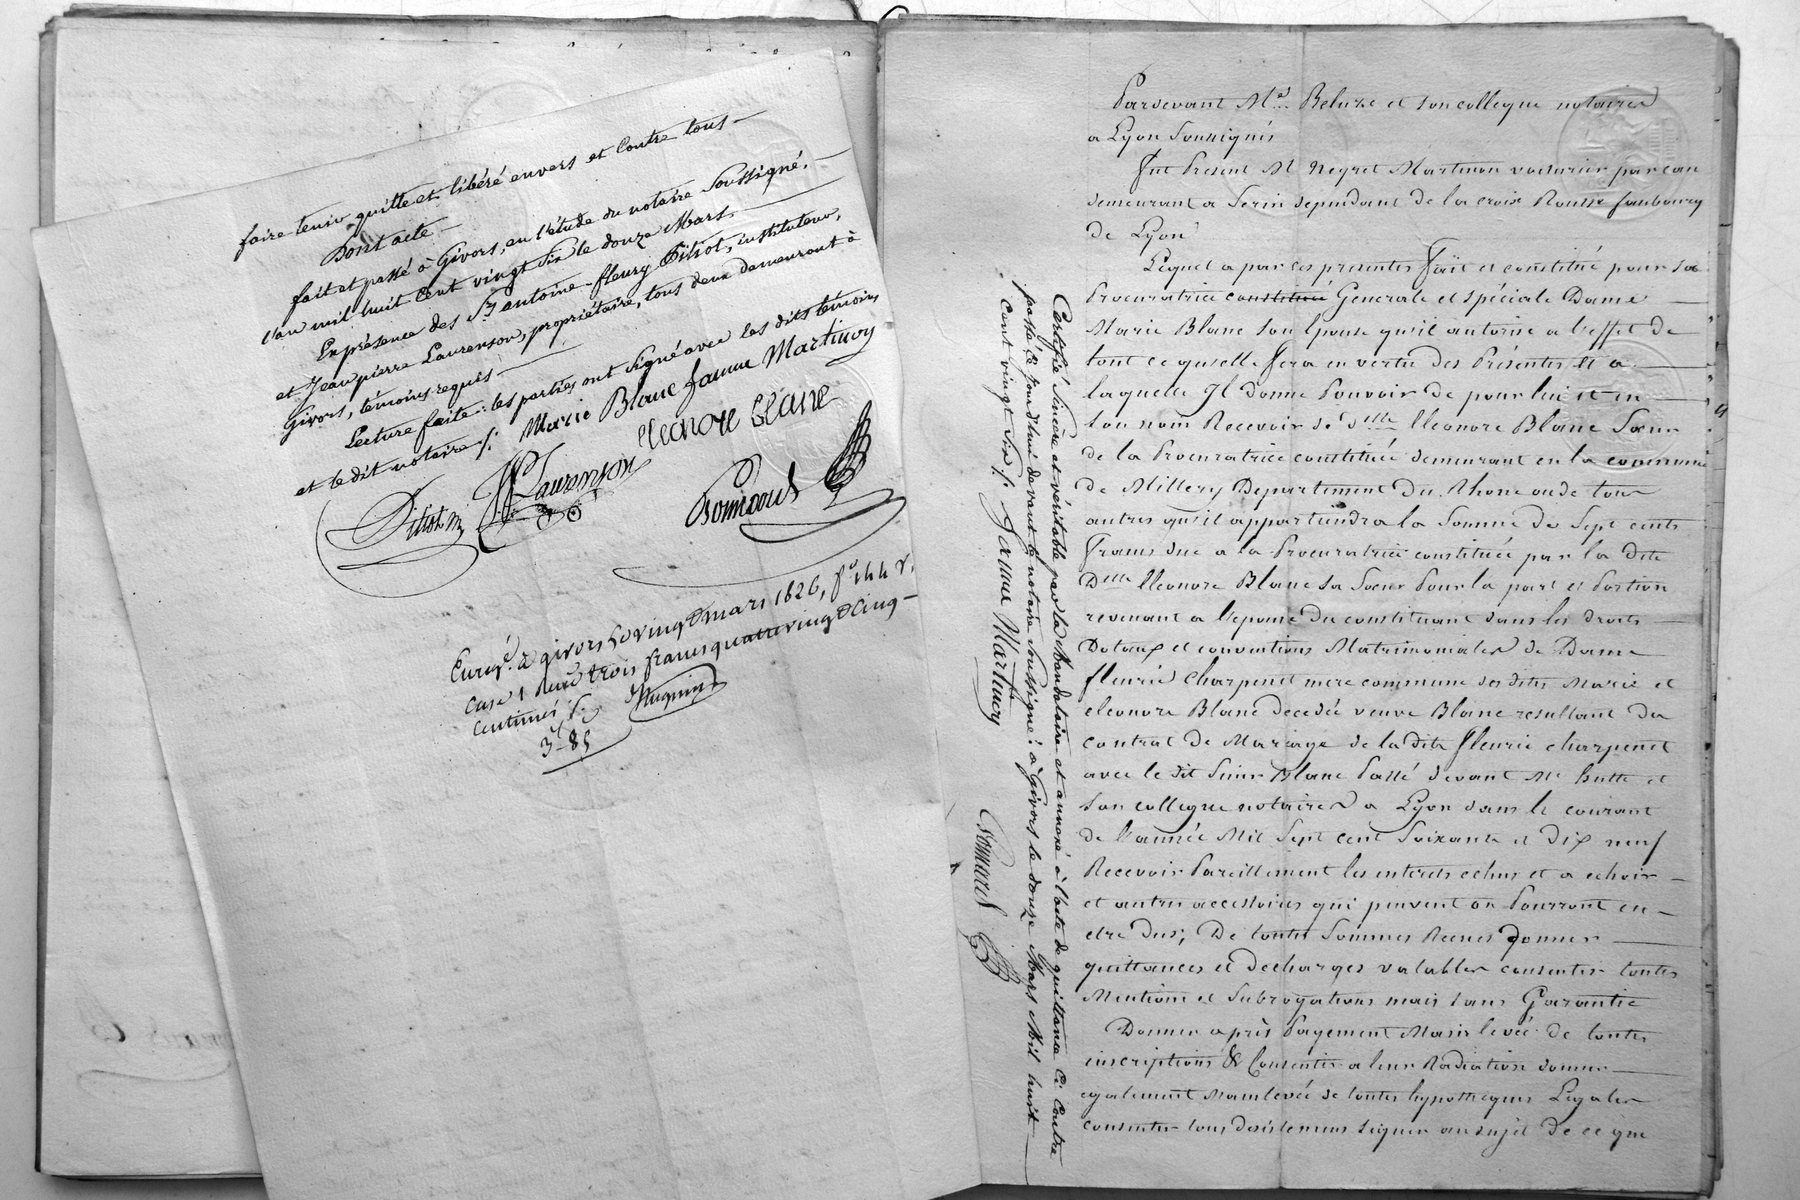 faire tenir quitte et libéré envers et contre tous
Dont acte
fait et passé à Givors, en l'étude du notaire soussigné,
l'an mil huit cent vingt six le douze Mars
En présence des Srs antoine-fleury Pitiot, instituteur,
et Jean pierre Laurenson, propriétaire, tous deux demeurant à
Givors, témoins requis
Lecture faite: les parties ont signé avec les dits témoins
et le dit notaire ./. Marie Blanc famme Martinon
eleonore blanc
Pitiot
JP Laurenson
Enregé. à givors le vingt mars 1826, fo 144 v.
case 1 trois francs quatre vingt cinq
centimes ./.
Hugnin
3f-85
Certifié sincère et véritable par la Mandataire et annexé à l'acte de quittance ci contre
passé ce jourd'hui devant le notaire soussigné: à Givors le douze Mars Mil huit
cent vingt six ./. famme Martinon
Pardevant Mes. Beluze et son collegue notaires
a Lyon Soussignés
fut Present M Negret Martinon voiturier par eau
demeurant a Serin dependant de la croix Rousse faubourg
de Lyon
Lequel a par ces presentes fait et constitué pour sa
Procuratrice constitué Generale et spéciale Dame
Marie Blanc son Epouse qu'il autorise a l'effet de
tout ce qu'elle fera en vertu des Présentes et a
laquelle Il donne Pouvoir de pour lui et en
son nom Recevoir de dlle Eleonore Blanc Sœur
de la Procuratrice constituée demeurant en la commune
de Millery Departement du Rhone ou de tous
autres qu'il appartiendra la Somme de Sept cents
francs due a la Procuratrice constituée par la dite
Dlle Eleonore Blanc sa Sœur Pour la part et Portion
revenant a l'epouse du constituant dans les droits
Dotaux et conventions Matrimoniales de Dame
fleurie Charpenet mere commune desdites Marie et
eleonore Blanc decedée veuve Blanc resultant du
contrat de Mariage de la dite fleurie charpenet
avec le dit Sieur Blanc Passé devant Me et
son collegue notaires a Lyon dans le courant
de l'année Mil Sept cent Soixante et Dix neuf
Recevoir Pareillement les interets echus et a echoir
et autres accessoires qui peuvent ou Pourront en
etre Dus; De toutes Sommes Recues donner
quittances et decharges valables consentir toutes
Mentions et Subrogations mais sans Garantie
Donner après Payement Main levée de toutes
inscriptions & Consentir a leur Radiation donner
egalement Mainlevée de toutes hypotheques Legales
consentir tous desistemens signer au sujet de ce que